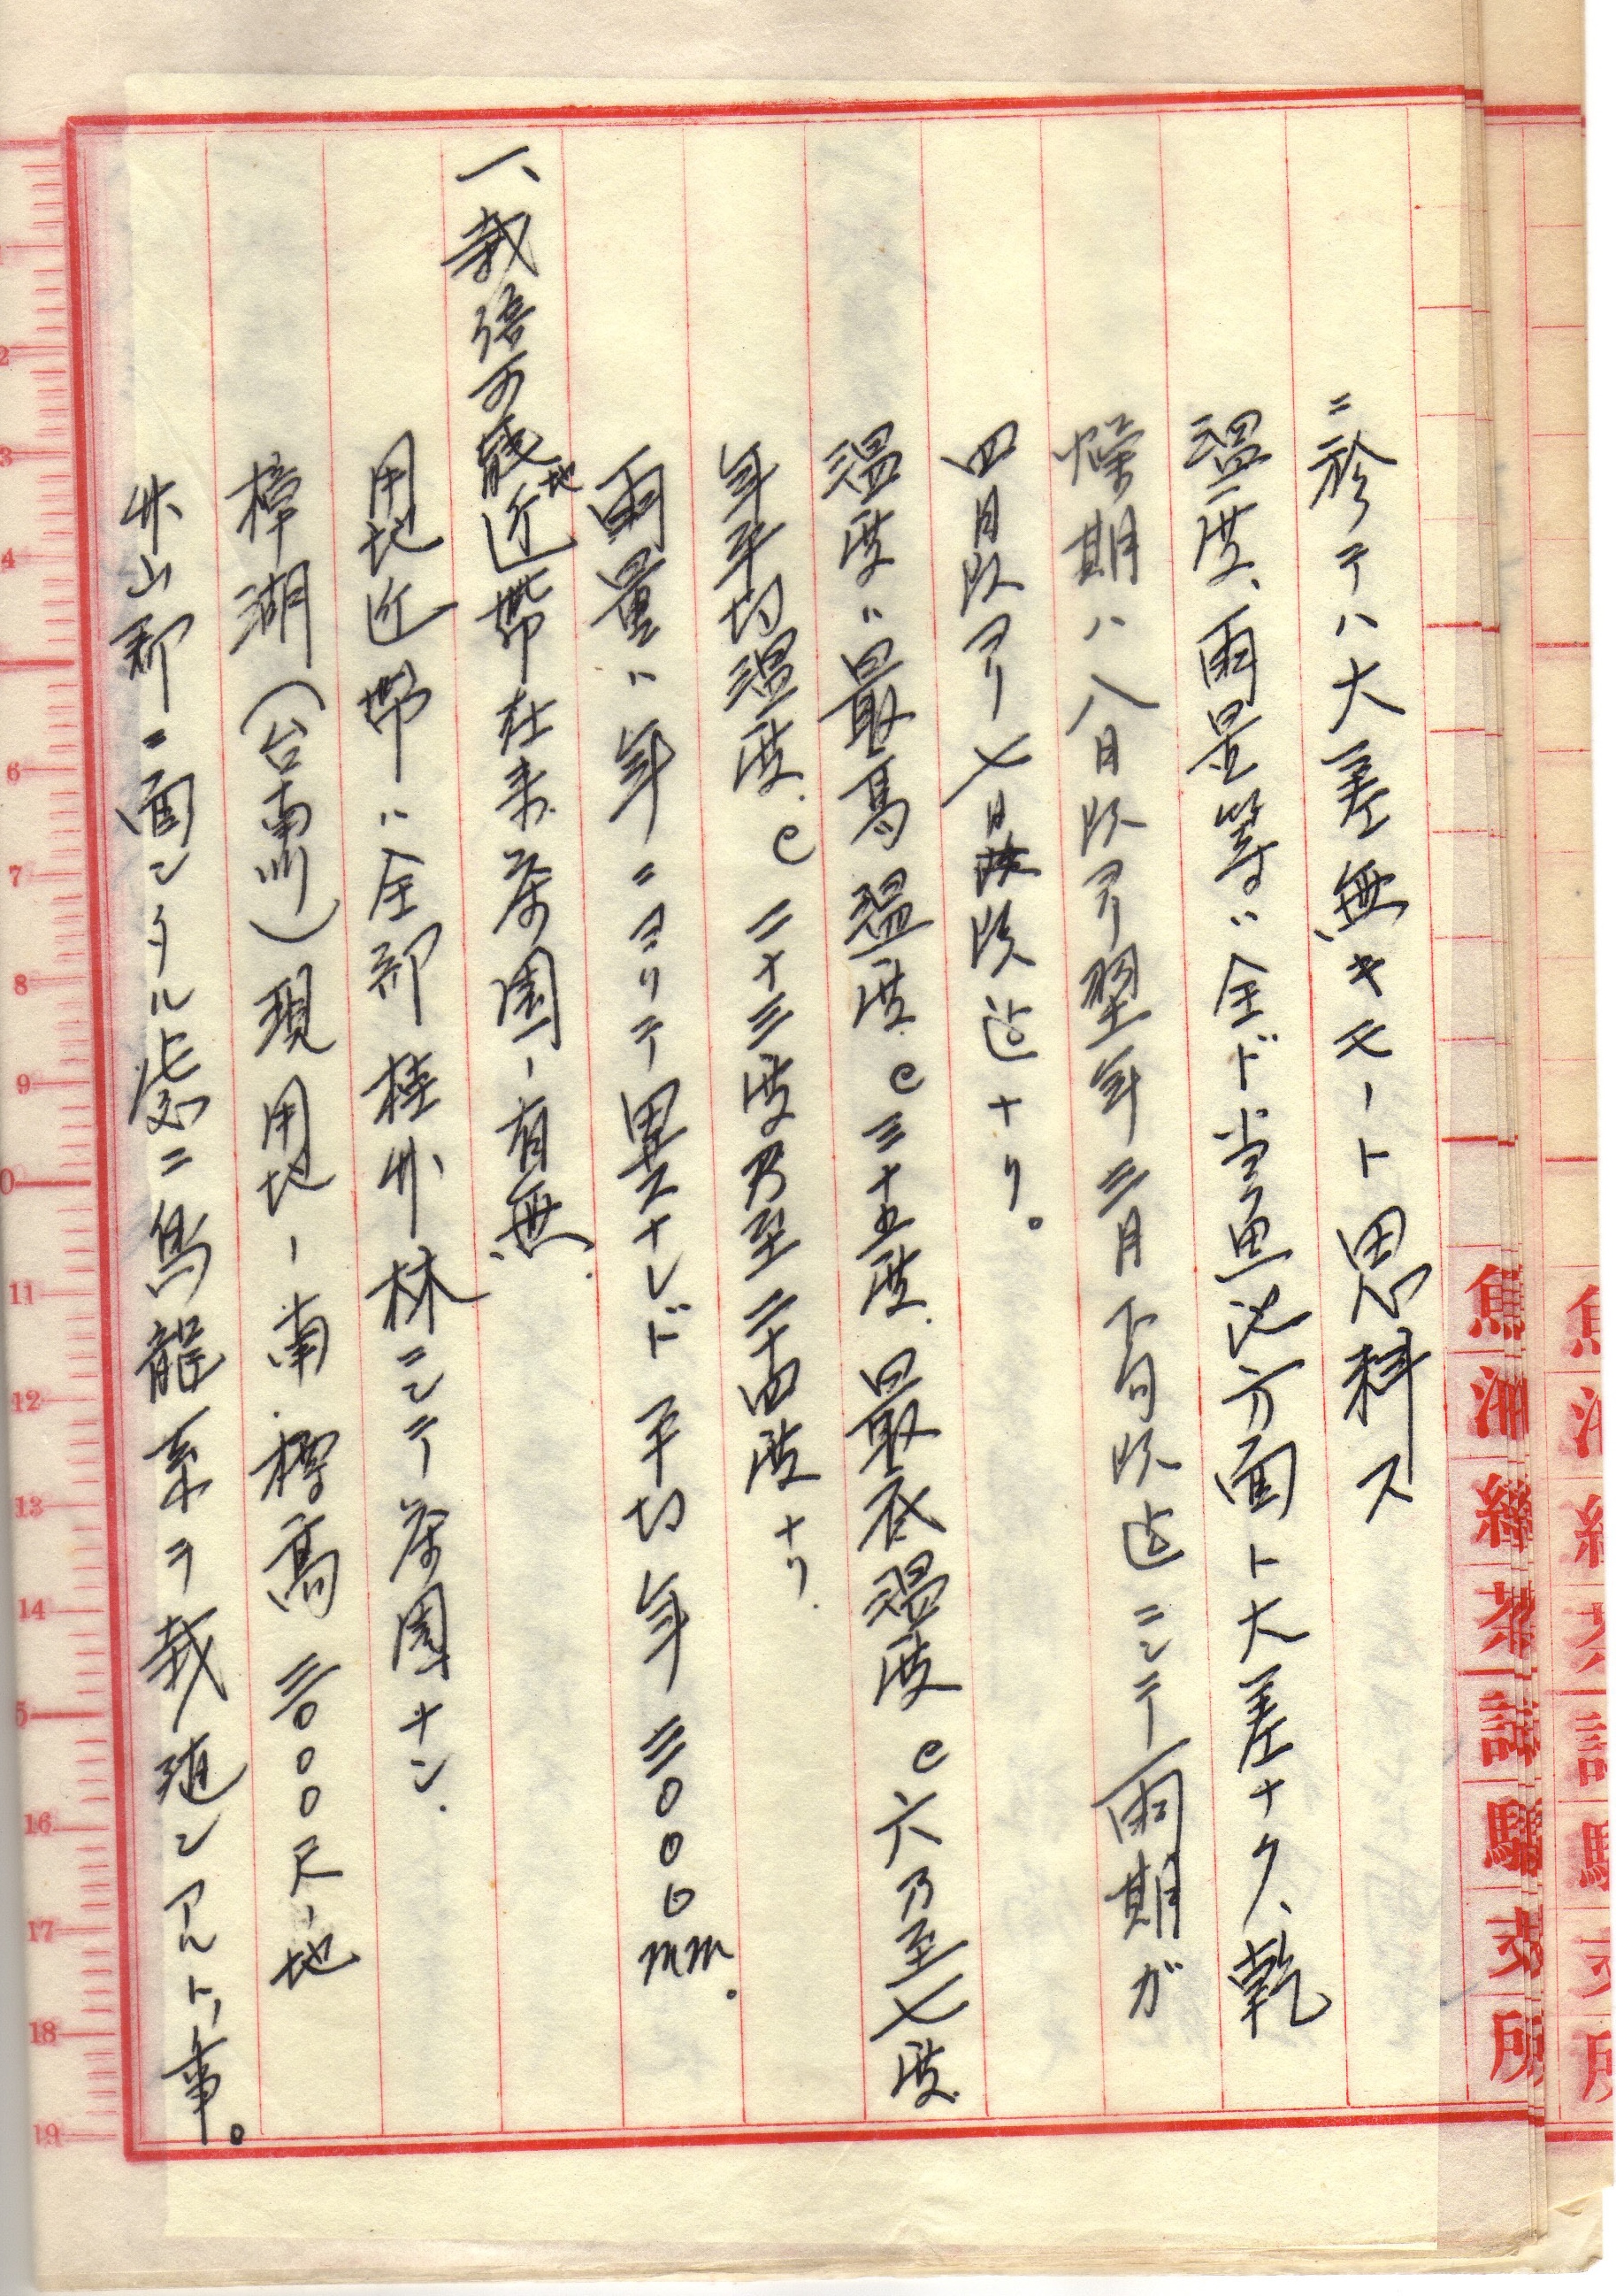 ニ於テハ大差無キモノト思料ス
温度、雨量等ハ全ド当魚池方面ト大差ナク、乾
燥期ハ八月頃ヨリ翌年三月下旬頃迄ニシテ雨期ガ
四月頃ヨリ七月頃迄ナリ。
温度ハ最高温度C三十五度、最低温度C六乃至七度
年平均温度C二十三度乃至二十四度ナリ.
雨量ハ年ニヨリテ異スナレド平均年三〇〇〇mm。
一、栽培可能地近帯在来茶園ノ有無.
用地近帯ハ全部桂竹林ニシテ茶園ナシ.
樟湖(台南州)現用地ノ南標高三〇〇〇尺ノ地
竹山郡ニ面シタル処ニ烏龍系ヲ栽植シアルトノ事。
魚池紅茶試験支所